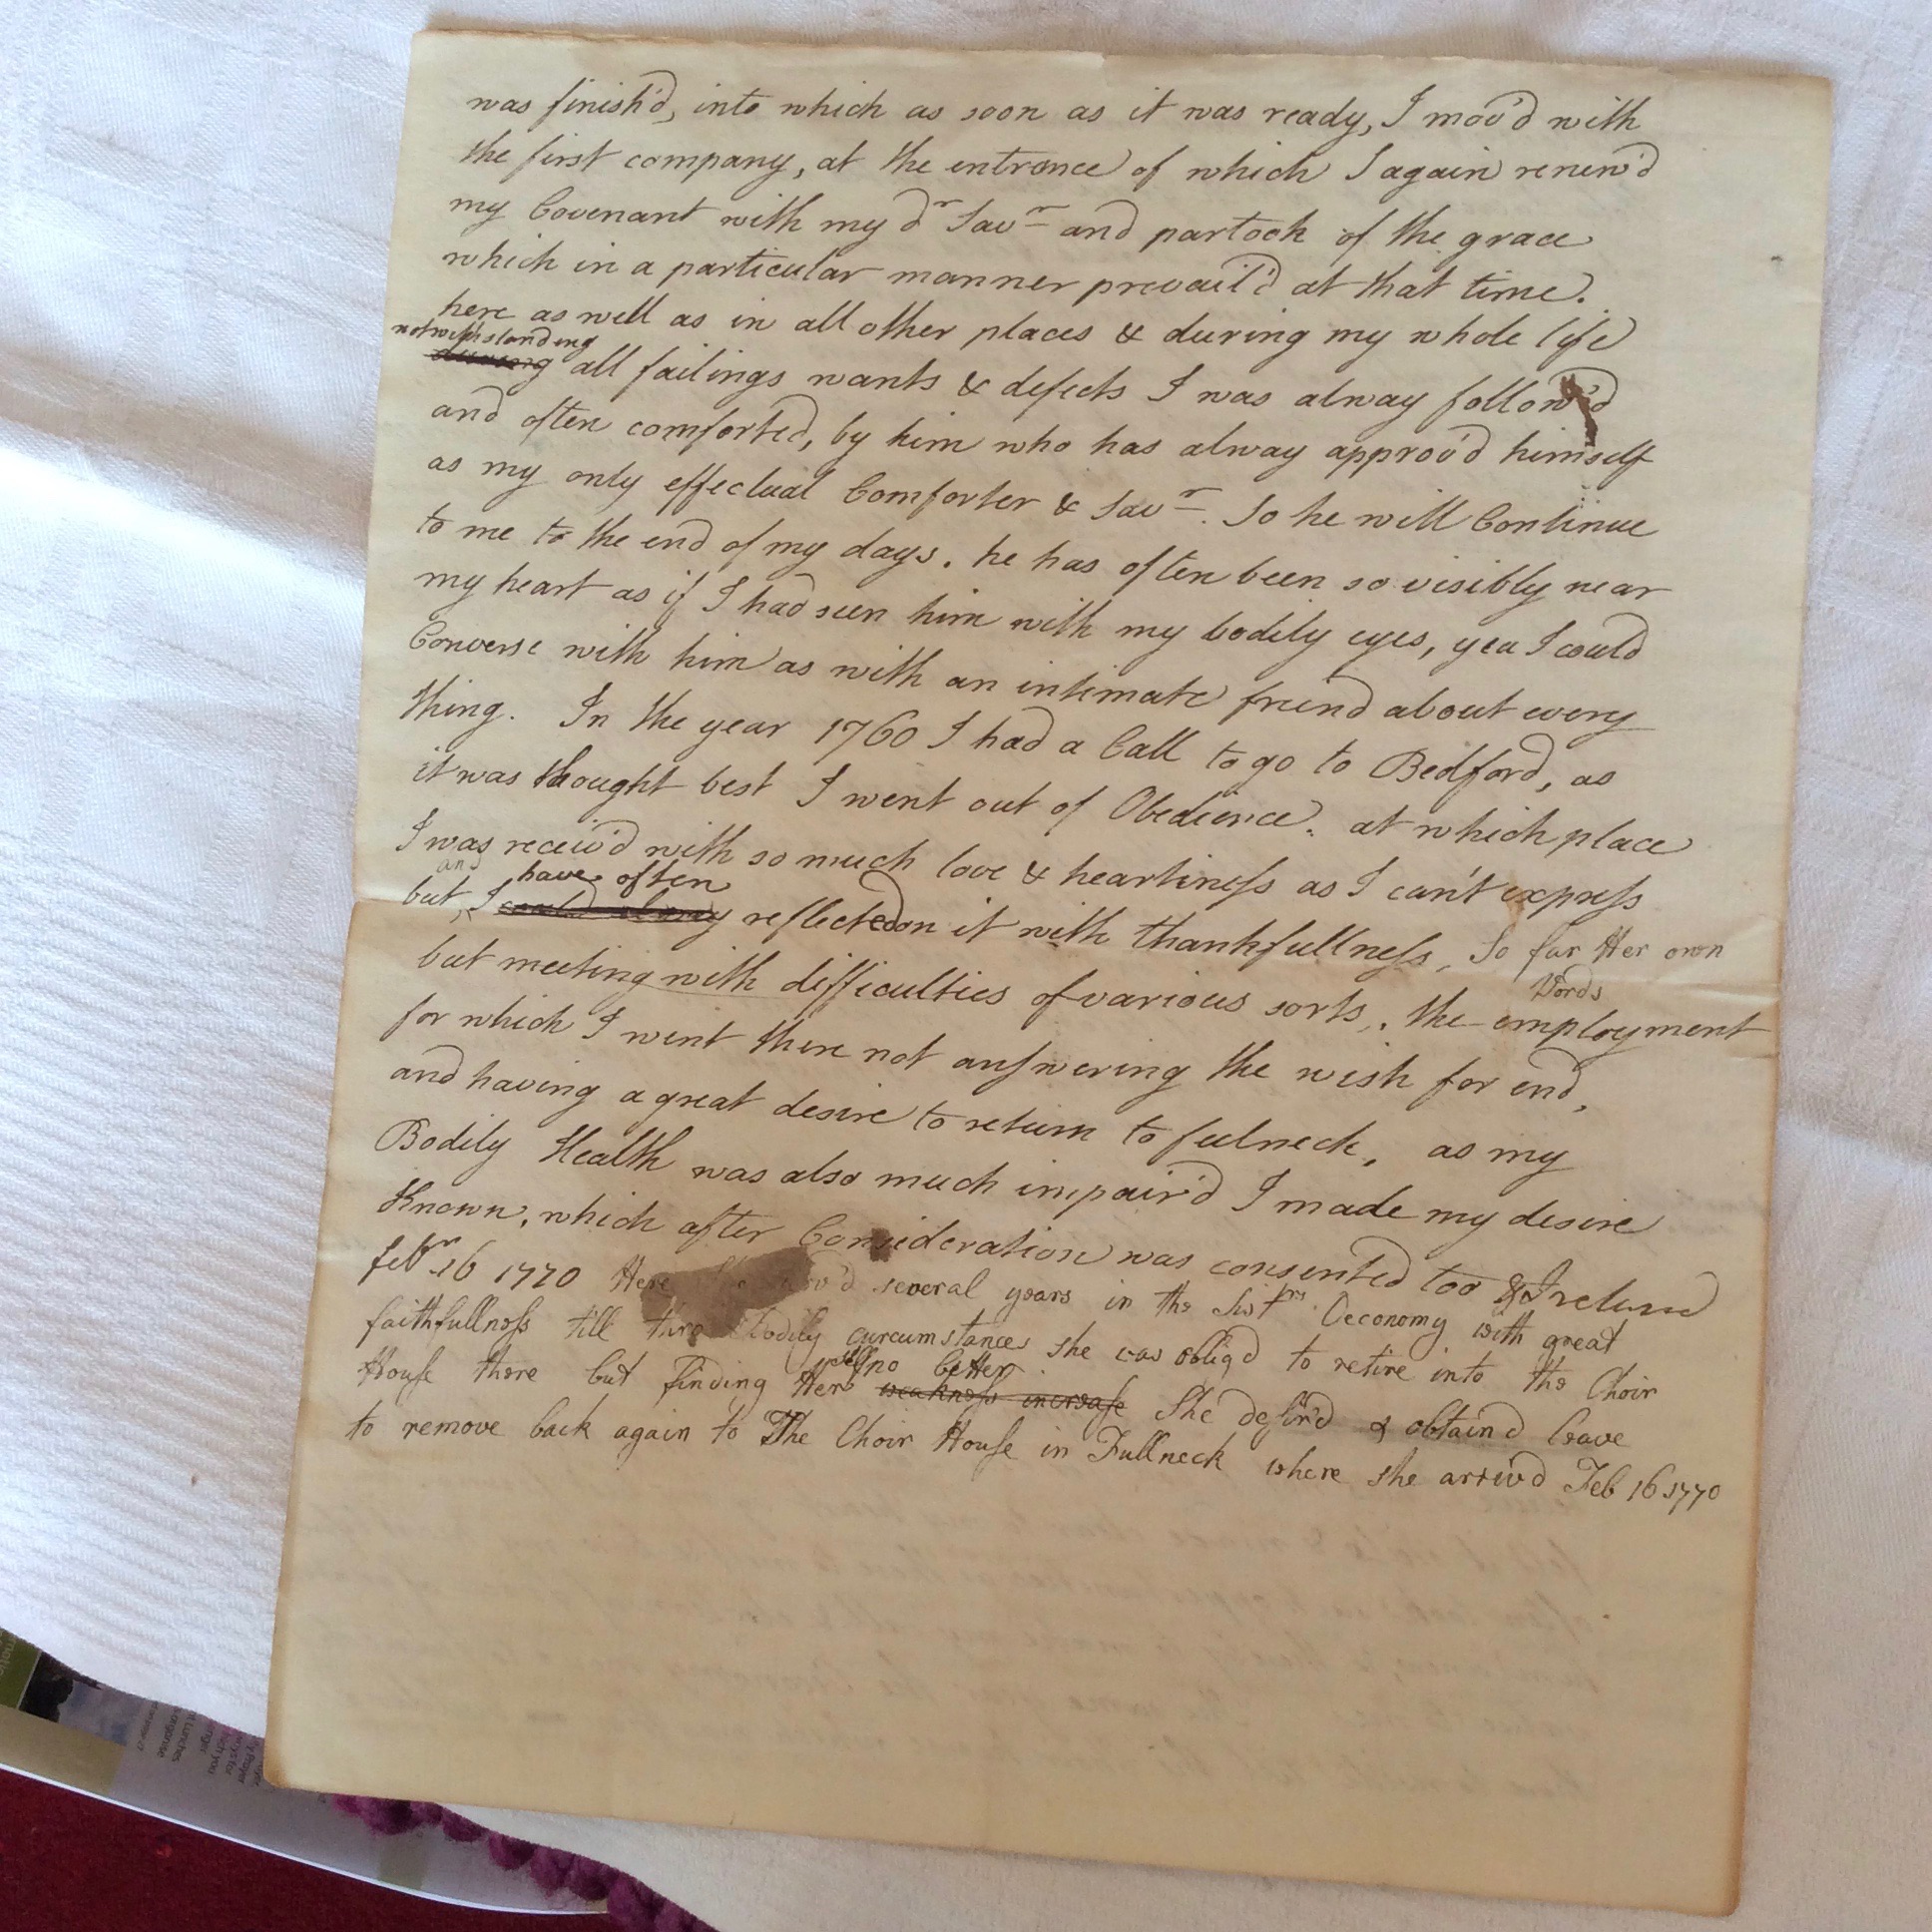 was finish'd, into which as soon as it was ready, I mov'd with
the first company, at the entrance of which I again renew'd
my Covenant with my dr Savr and partook of the grace
which in a particular manner prevail'd at that time.
here as well as in all other places & during my whole life
notwithstanding
during all failings wants & defects I was alway follow'd
and often comforted, by him who has alway approv'd himself
as my only effectual Comforter & Savr. So he will Continue
to me to the end of my days. he has often been so visibly near
my heart as if I had seen him with my bodily eyes, yea I could
Converse with him as with an intimate friend about every
thing. In the year 1760 I had a Call to go to Bedford, as
it was thought best I went out of Obedience. at which place
I was receiv'd with so much love & heartiness as I can't express
and have often
but, I could alway reflected on it with thankfullness, So far Her own
Words
but meeting with difficulties of various sorts, the employment
for which I went there not answering the wish for end,
and having a great desire to return to fulneck, as my
Bodily Health was also much impair'd I made my desire
Known, which after Consideration was consented too & I return'd
febr 16 1770 Here several years in the Sistrs Oeconomy with great
faithfullness till bodily curcumstances she was obligd to retire into the Choir
self no better
House there but finding Her weakness increase She desir'd & obtain'd leave
to remove back again to The Choir House in Fullneck where she arriv'd Feb 16 1770